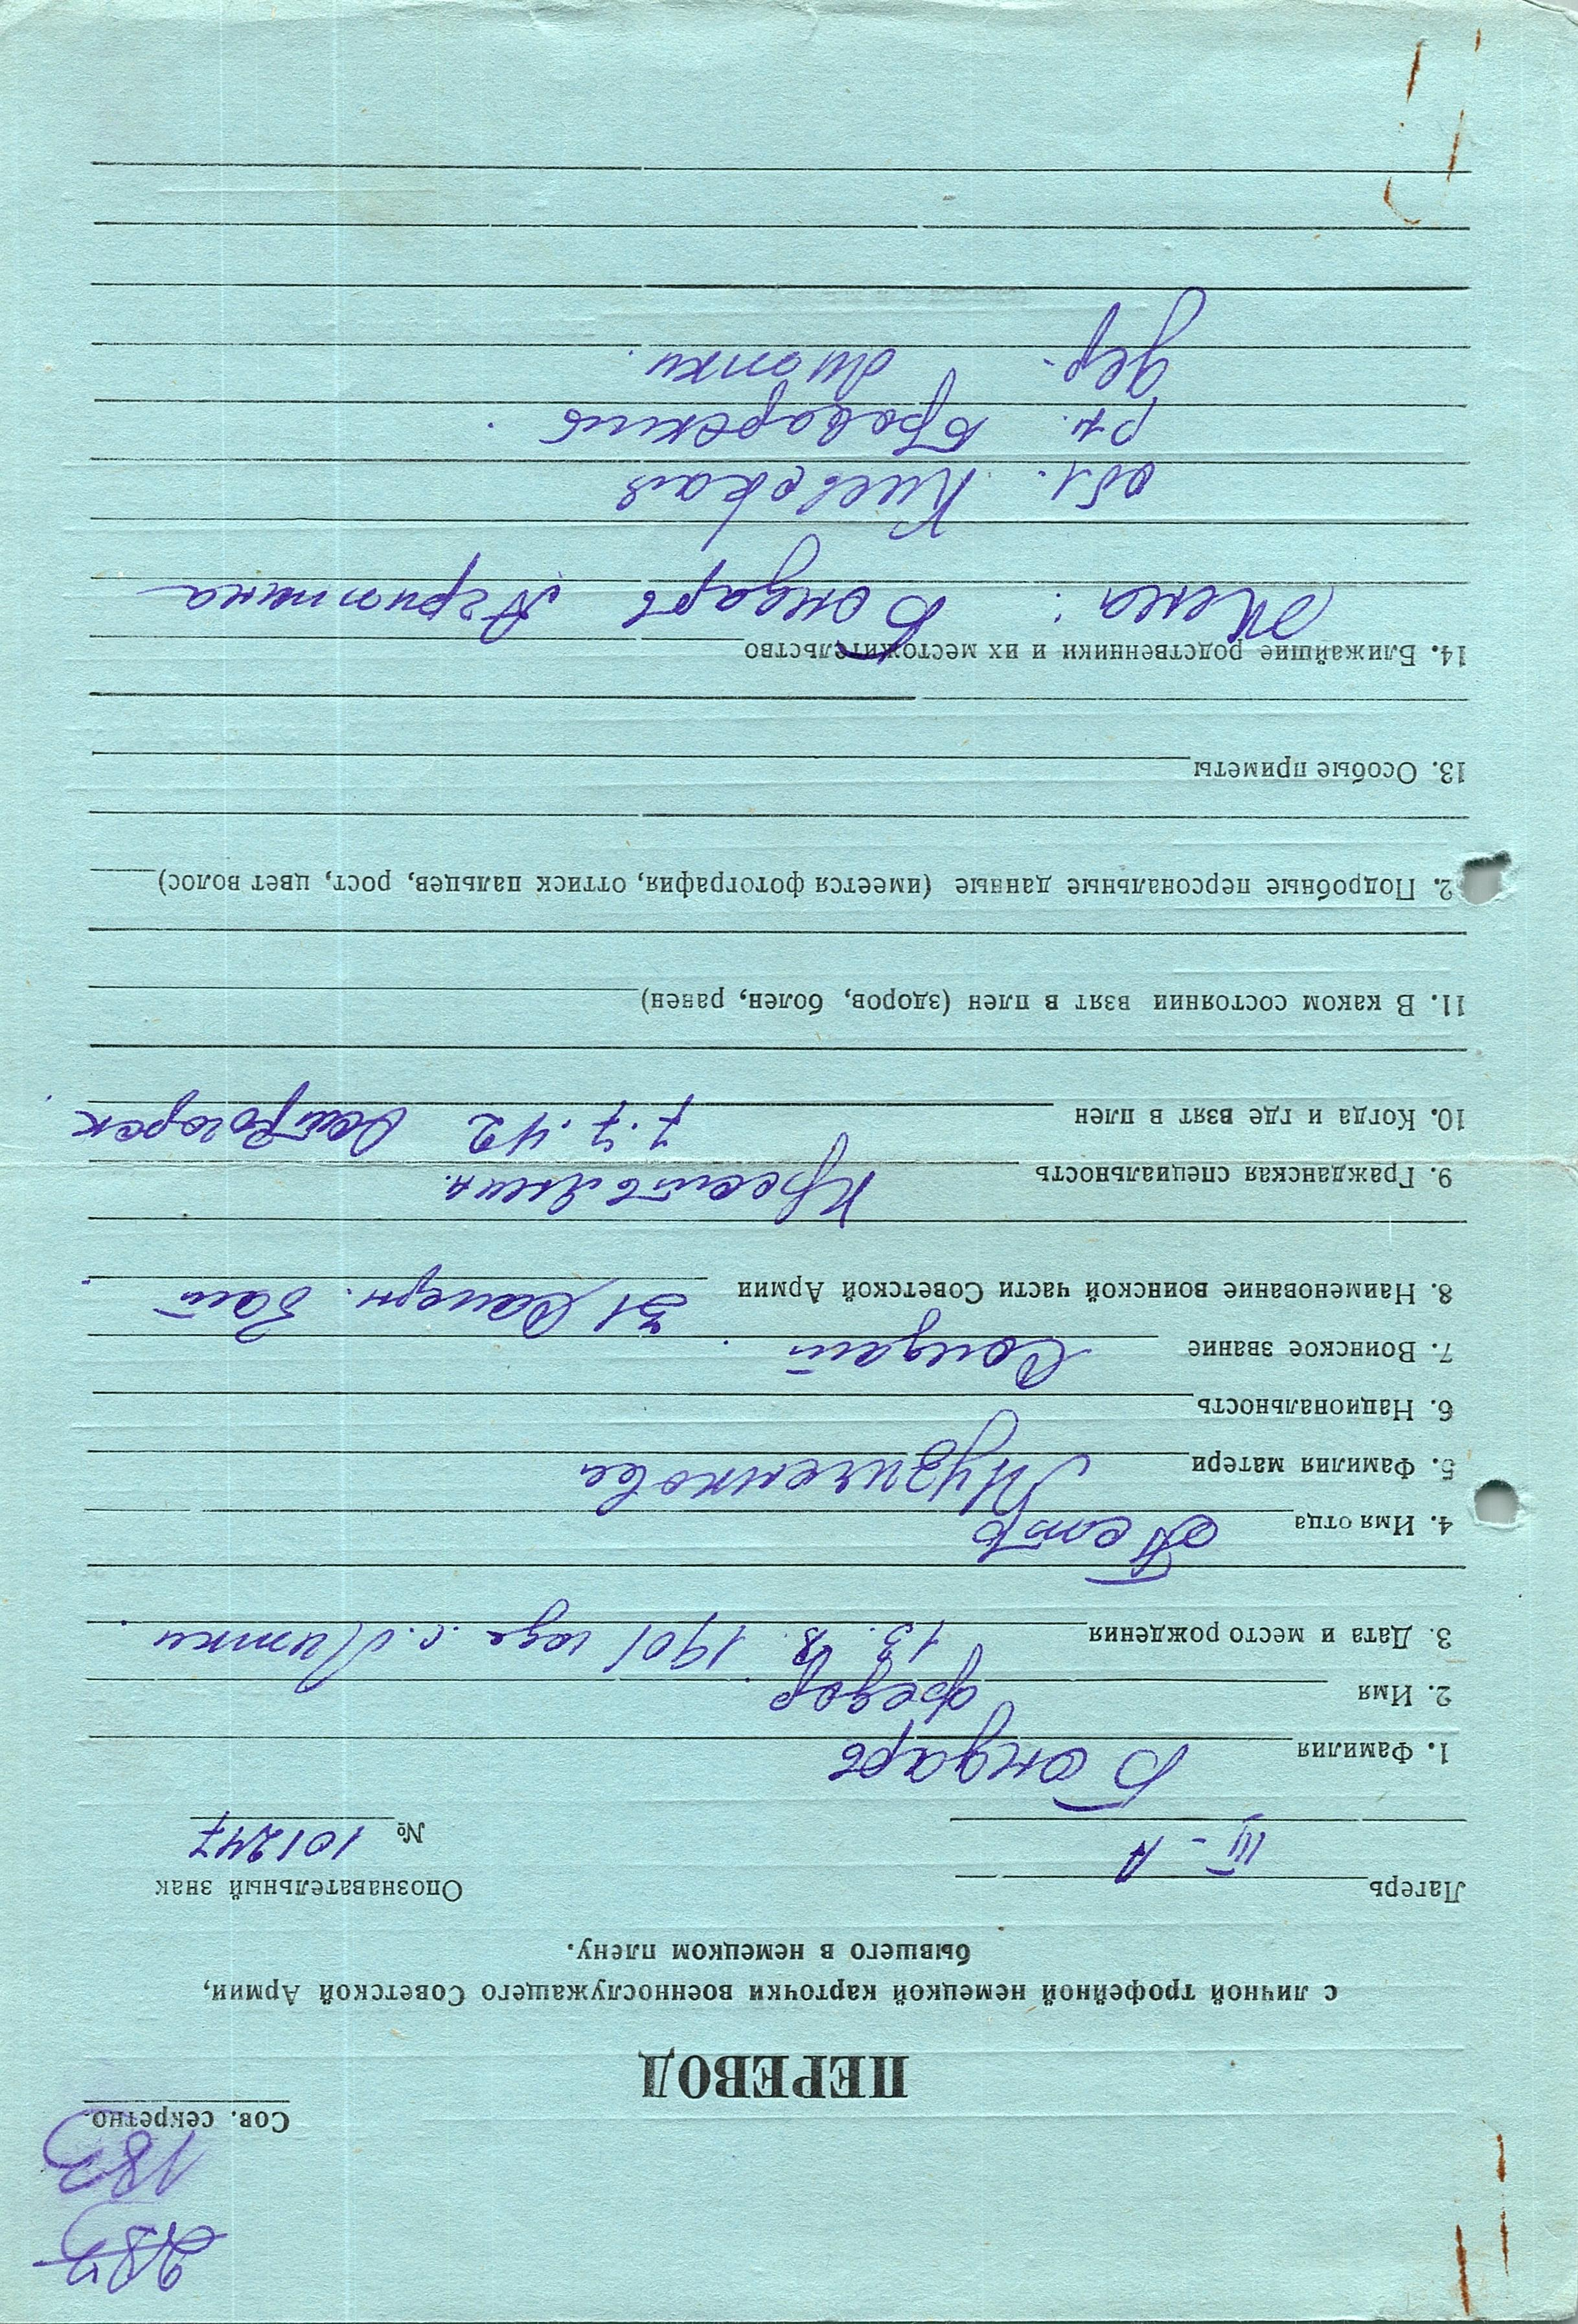 183
Сов. секретно.
ПЕРЕВОД
с личной трофейной немецкой карточки военнослужащего Советской Армии,
бывшего в немецком плену.
Лагерь III-А Опознавательный знак
№ 101247
1. Фамилия Бондарь
2. Имя Федор
3. Дата и место рождения 1901 года с. Литки.
4. Имя отца Петр
5. Фамилия матери
6. Национальность
7. Воинское звание Солдат.
8. Наименование воинской части Советской Армии 31 Саперн. бат.
9. Гражданская специальность Крестьянин.
10. Когда и где взят в плен 7.7.42 Острогорск.
11. В каком состоянии взят в плен (здоров, болен, ранен)
2. Подробные персональные данные (имеется фотография, оттиск пальцев, рост, цвет волос)
13. Особые приметы
14. Ближайшие родственники и их местожительство
Жена: Бондарь Агриппина
обл. Киевская
р-н. Броварский.
дер. Литки.